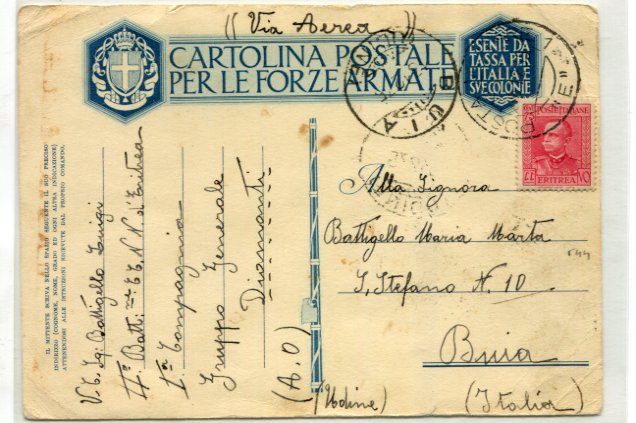 "Via Aerea"
CARTOLINA POSTALE
PER LE FORZE ARMATE
ESENTE DA
TASSA PER
L'ITALIA E
SVE COLONIE
POSTA
"E"
BUIA
POSTE ITALIANE
ERITREA
IL MITTENTE SCRIVA NELLO SPAZIO SEGUENTE IL SUO PRECISO
INDIRIZZO (COGNOME, NOME, GRADO ED OGNI ALTRA INDICAZIONE)
ATTENENDOSI ALLE ISTRUZIONI RICEVUTE DAL PROPRIO COMANDO.
Battigello Luigi
d'Eritrea
Iª Compagnia
Gruppo Generale
Diamanti
(A.O)
Alla Signora
Battigello Maria Marta
S. Stefano N. 10
Buia
(Udine) (Italia)